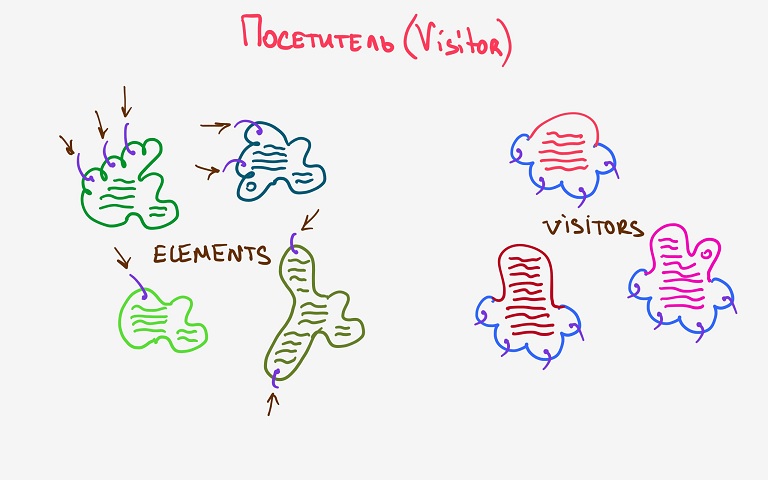 Посетитель (Visitor)
ELEMENTS
VISITORS